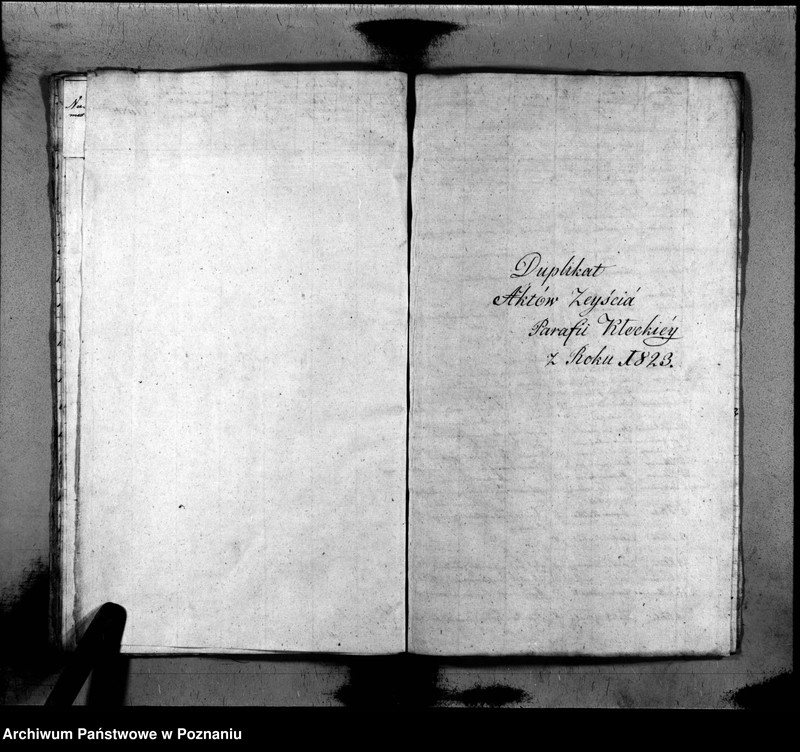 Nu-
mer
Duplikat
Aktów Zeyściá
Parafii Kłeckiéy
z Roku 1823.
Archiwum Państwowe w Poznaniu